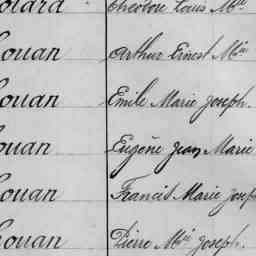 Théodore Louis M^ie
ouan Arthur Ernest M^ie
ouan Emile Marie Joseph.
ouan Eugène Jean Marie
ouan Francis Marie Josep
ouan Pierre M^ie Joseph.